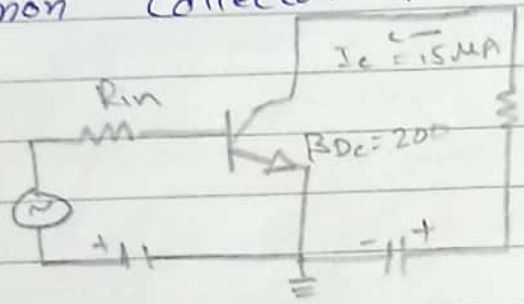 mon Collecto
Ic = 15 µA
Rin
βDc = 200
+
- +